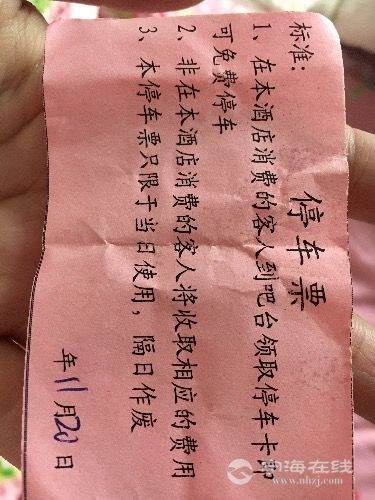 停车票
标准：
1、在本酒店消费的客人到吧台领取停车卡即
可免费停车
2、非在本酒店消费的客人将收取相应的费用
3、本停车票只限于当日使用，隔日作废
年11月20日
南海在线
www.nhzj.com